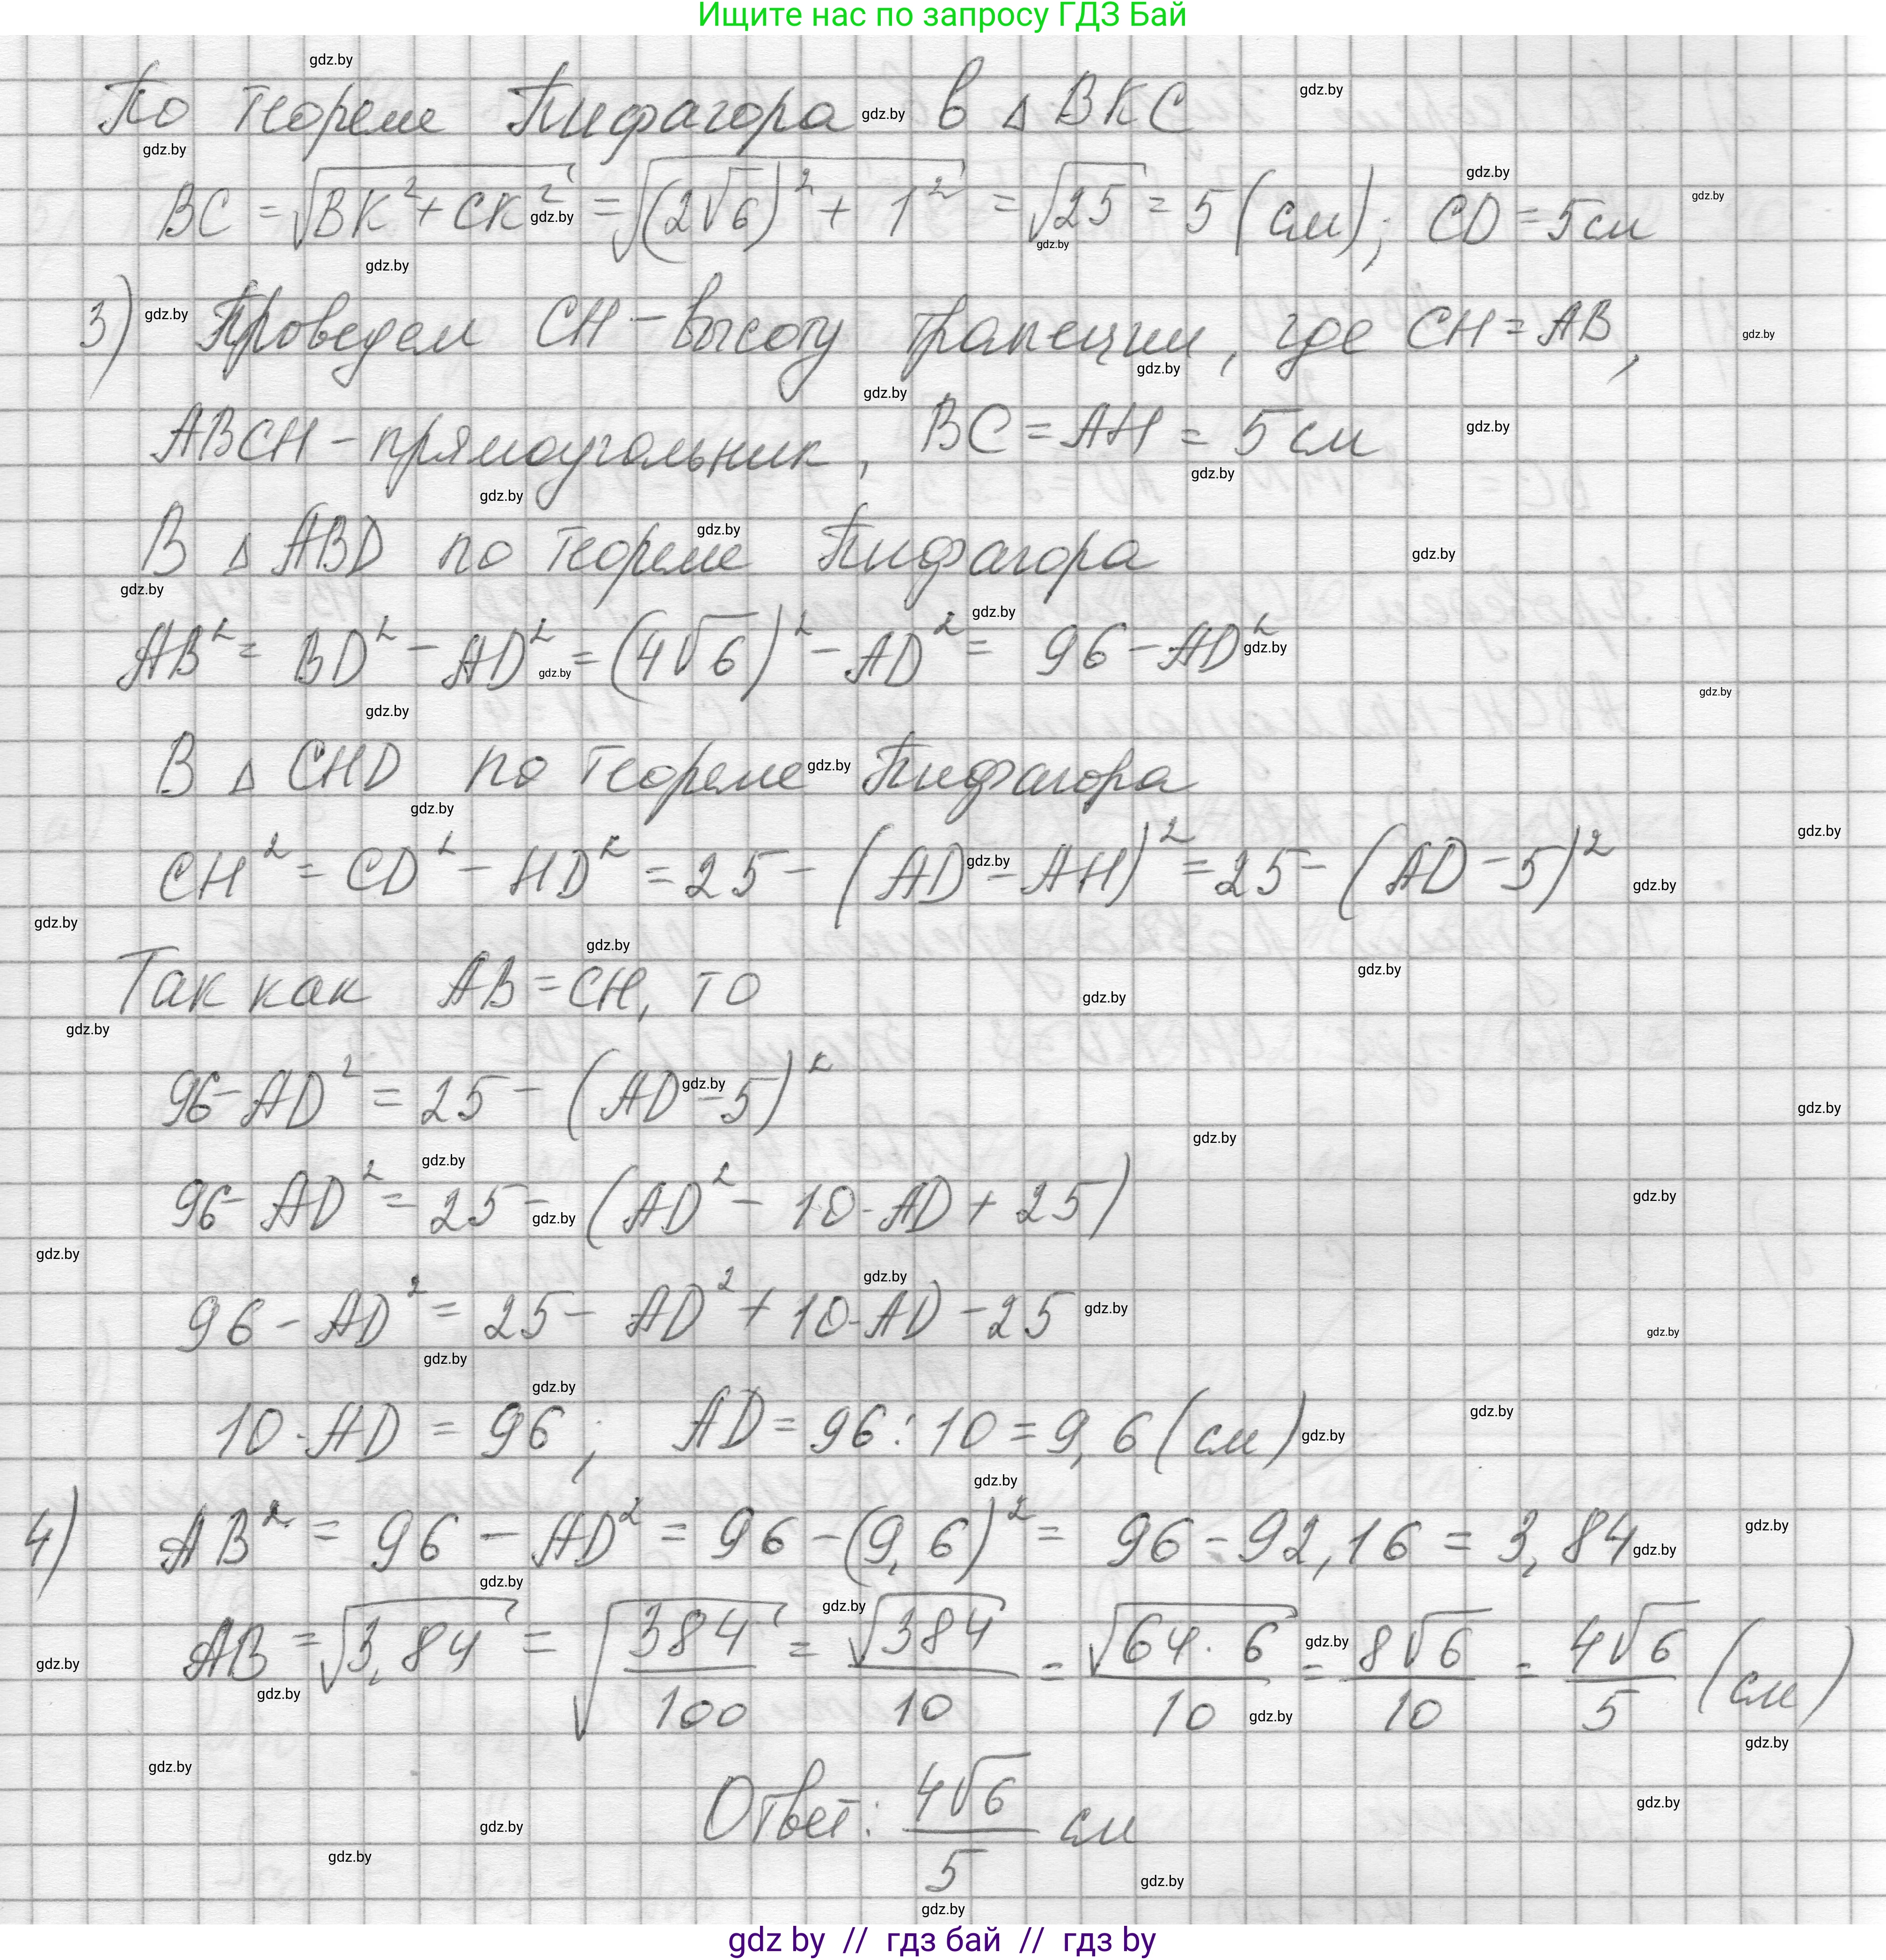 Ищите нас по запросу ГДЗ Бай
По теореме Пифагора в △ BKC
BC = √(BK² + CK²) = √((2√6)² + 1²) = √25 = 5 (см); CD = 5 см
3) Проведем CH – высоту трапеции, где CH = AB,
ABCH – прямоугольник, BC = AH = 5 см
В △ ABD по теореме Пифагора
AB² = BD² – AD² = (4√6)² – AD² = 96 – AD²
В △ CHD по теореме Пифагора
CH² = CD² – HD² = 25 – (AD – AH)² = 25 – (AD – 5)²
Так как AB = CH, то
96 – AD² = 25 – (AD – 5)²
96 – AD² = 25 – (AD² – 10·AD + 25)
96 – AD² = 25 – AD² + 10·AD – 25
10·AD = 96; AD = 96 : 10 = 9,6 (см)
4) AB² = 96 – AD² = 96 – (9,6)² = 96 – 92,16 = 3,84
AB = √3,84 = √(384/100) = √384/10 = √(64·6)/10 = 8√6/10 = 4√6/5 (см)
Ответ: 4√6/5 см
gdz by // гдз бай // гдз by